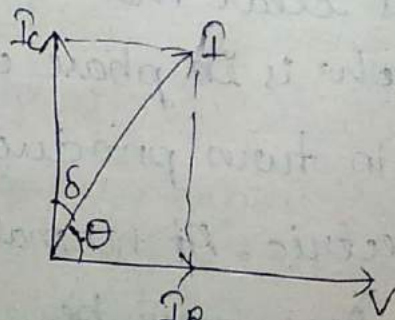 Ic I
δ
θ
IR V